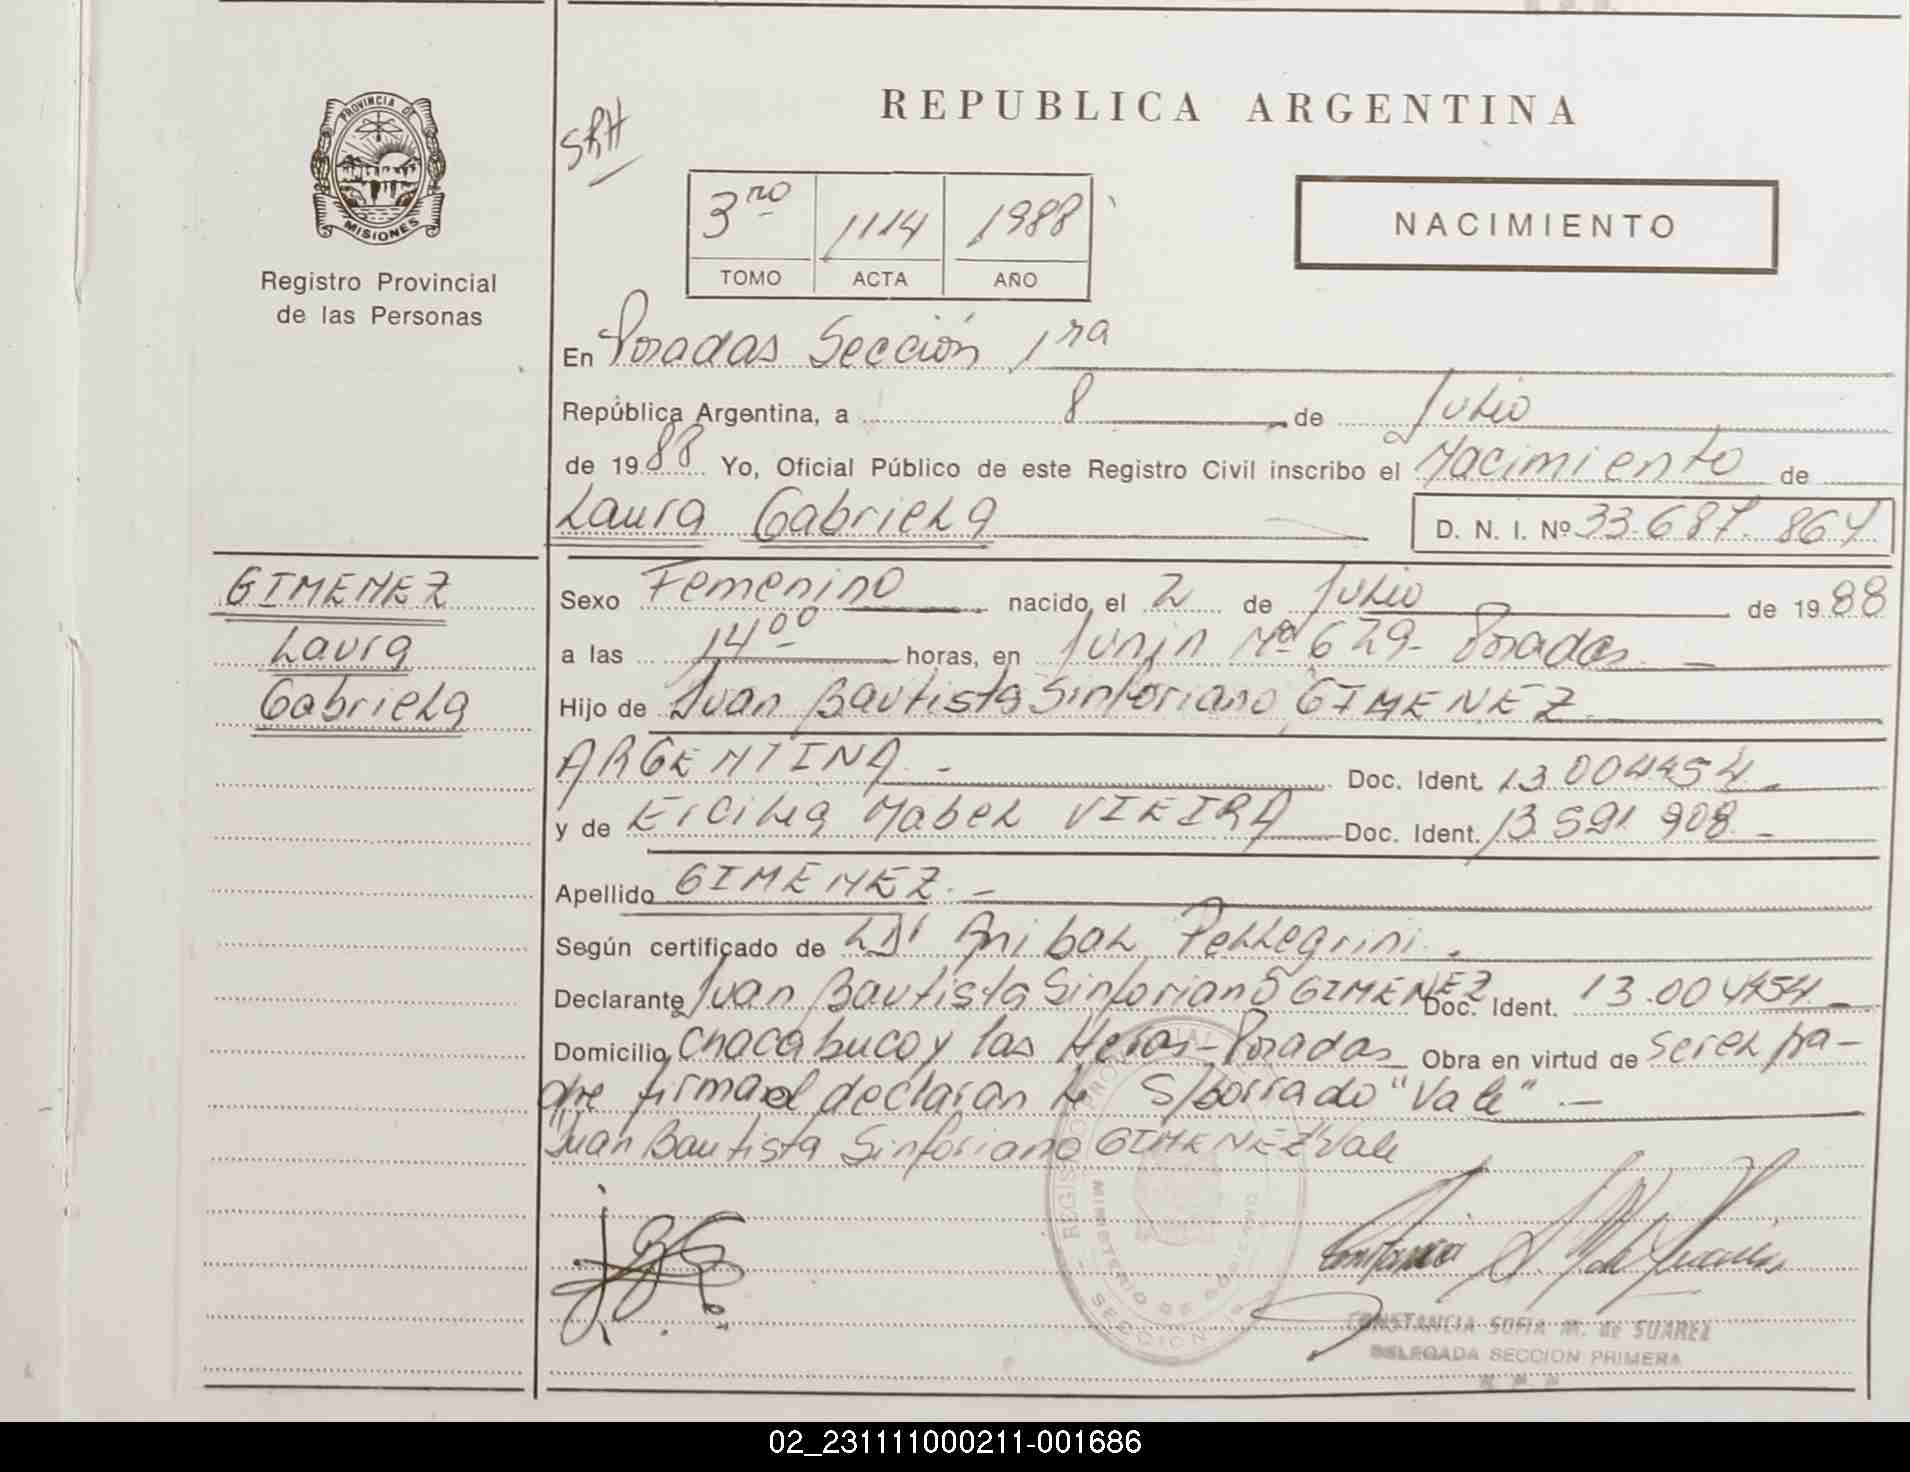 REPUBLICA ARGENTINA
PROVINCIA DE
MISIONES
Registro Provincial
de las Personas
SRH
3ro 1114 1988
TOMO ACTA AÑO
NACIMIENTO
En Posadas Sección 1ra
República Argentina, a 8 de Julio
de 1988 Yo, Oficial Público de este Registro Civil inscribo el Nacimiento de
Laura Gabriela D. N. I. Nº 33.687.867
GIMENEZ
Laura
Gabriela
Sexo Femenino nacido el 2 de Julio de 1988
a las 14 00 horas, en Junin Nº 629- Posadas. -
Hijo de Juan Bautista Sinforiano GIMENEZ
ARGENTINA. - Doc. Ident. 13.004454. -
y de Ercilia Mabel VIEIRA Doc. Ident. 13.591.908. -
Apellido GIMENEZ. -
Según certificado de Anibal Pellegrini. -
Declarante Juan Bautista Sinforiano GIMENEZ Doc. Ident. 13.004454 -
Domicilio Chacabuco y las Heras- Posadas Obra en virtud de ser el pa-
dre firma el declarante S/borrado "Vale" . -
"Juan Bautista Sinforiano GIMENEZ" Vale
REGISTRO PROVINCIAL
MINISTERIO DE GOBIERNO
SECCION
CONSTANCIA SOFIA M. de SUAREZ
DELEGADA SECCION PRIMERA
02_231111000211-001686